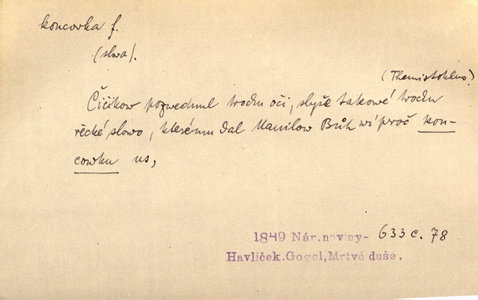 koncovka f.
(slova).
(Themistoklus)
Čičikow pozwednul trochu oči, slyše takowé trochu
řécké slowo, kterému dal Manilow Bůh wí proč kon-
cowku us,
1849 Nár. noviny- 633 c. 78
Havlíček. Gogol, Mrtvé duše.